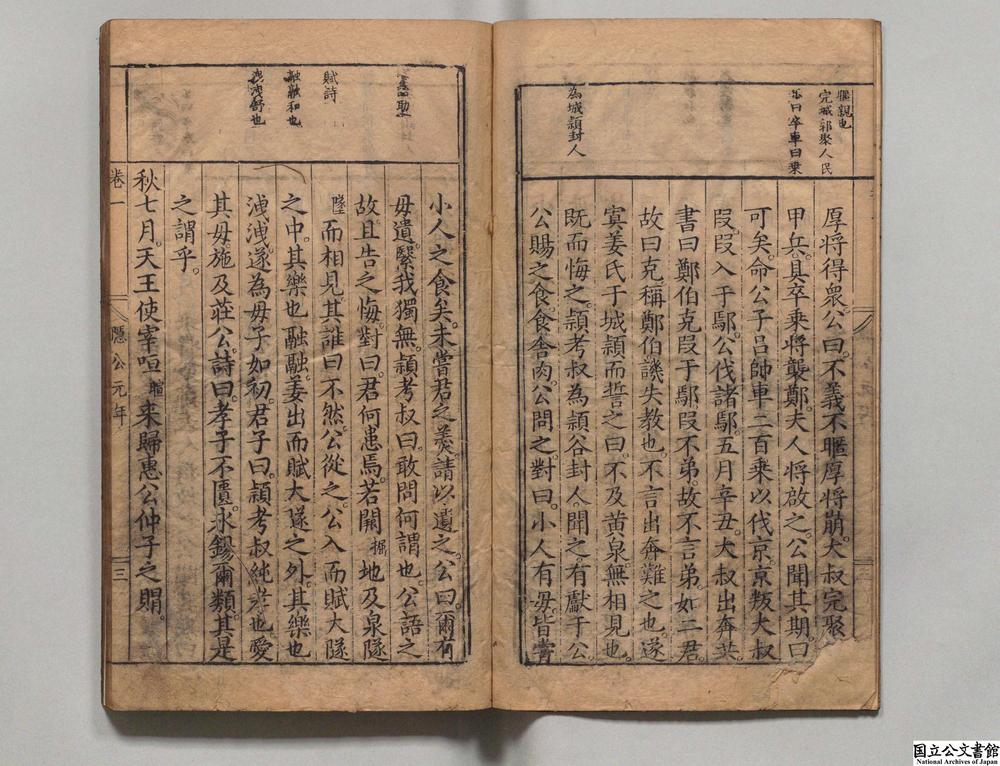 暱親也
完城郭聚人民
曰卒車曰乗
為城頴封人
厚将得衆公曰不義不暱厚将崩大叔完聚
甲兵具卒乗将襲鄭夫人将啟之公聞其期曰
可矣命公子吕帥車二百乗以伐京京叛大叔
段段入于鄢公伐諸鄢五月辛丑大叔出奔共
書曰鄭伯克段于鄢段不弟故不言弟如二君
故曰克稱鄭伯譏失教也不言出奔難之也遂
寘姜氏于城頴而誓之曰不及黄泉無相見也
既而悔之頴考叔為頴谷封人聞之有獻于公
公賜之食食舎肉公問之對曰小人有毋皆甞
賦詩
融融和也
洩洩舒也
小人之食矣未嘗君之羹請以遺之公曰爾有
毋遺繄我獨無頴考叔曰敢問何謂也公語之
故且告之悔對曰君何患焉若闕掘地及泉隧
隧而相見其誰曰不然公從之公入而賦大隧
之中其樂也融融姜出而賦大隧之外其樂也
洩洩遂為毋子如初君子曰頴考叔純孝也愛
其毋施及莊公詩曰孝子不匱永錫爾類其是
之謂乎
秋七月天王使宰咺暄来歸恵公仲子之賵
卷一
隱公元年
三
国立公文書館
National Archives of Japan